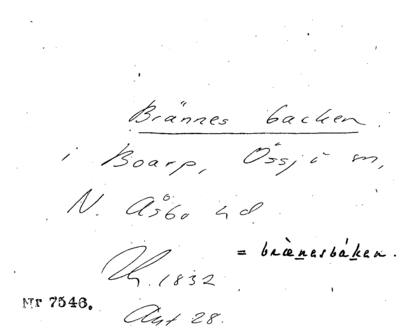 Brännes backen.
i Boarp, Össjö sn,
N. Åsbo hd
= bræ̀nesbáken.
Uh. 1832
Nr 7546.
Akt 28.